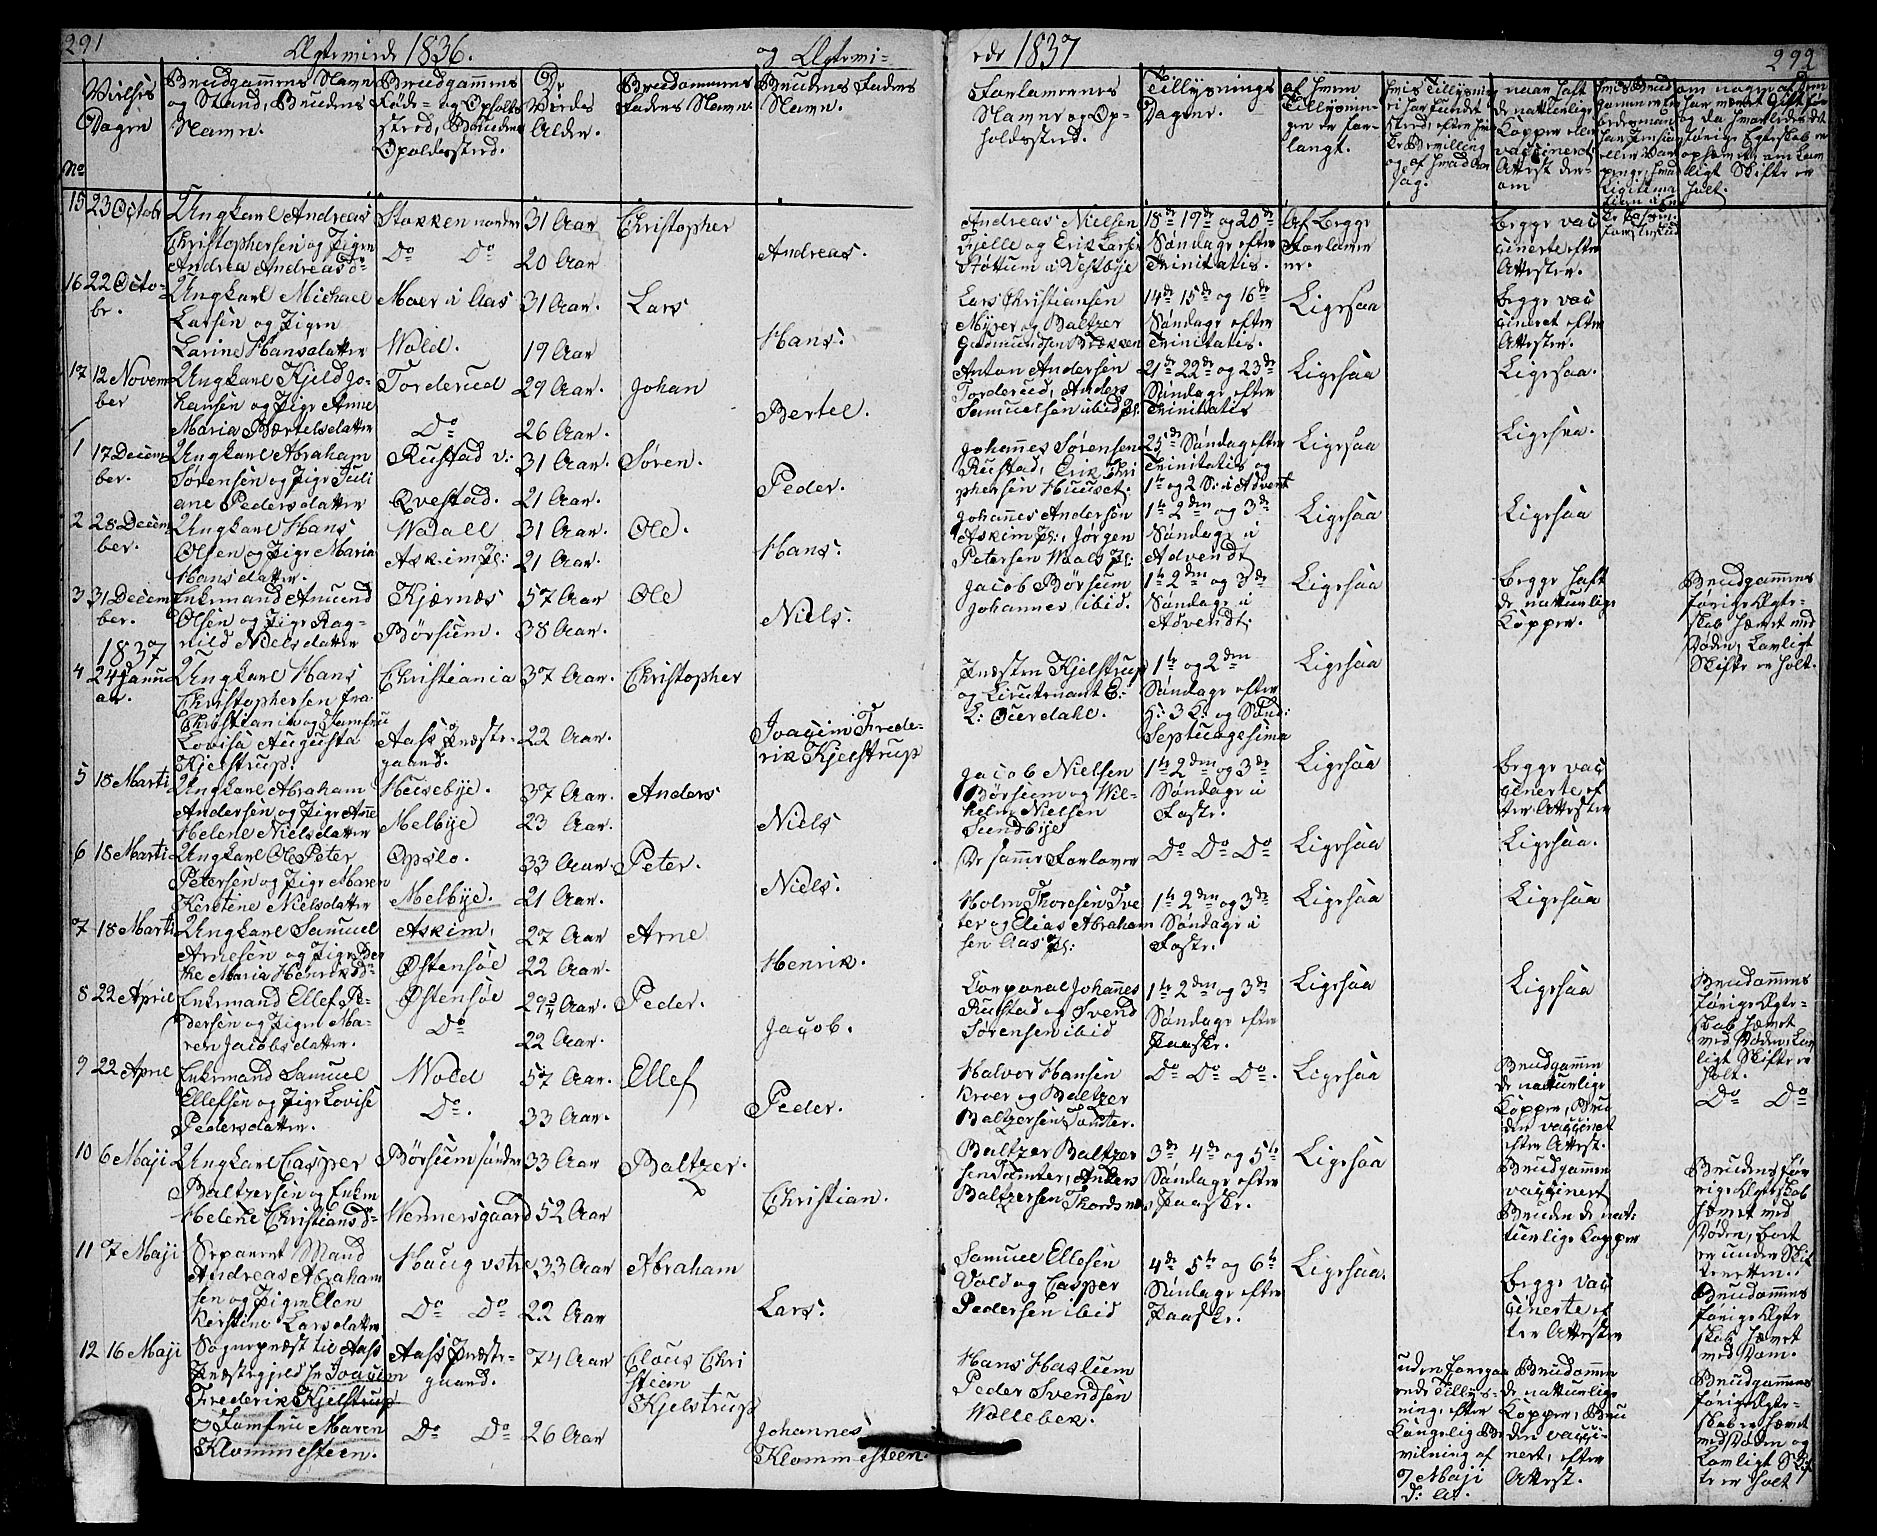 291
Ægteviede 1836.
og Ægtevi-
ede 1837
292
No
Vielses
Dagen
Brudgommens Navn
og Stand, Brudens
Navn.
Brudgommens
Føde- og Opholds
sted, Brudens
Opholdssted.
De
Viedes
Alder.
Brudgommens
Faders Navn.
Brudens Faders
Navn.
Forlovernes
Navne og Op-
holdssted.
Tillysnings
Dagene.
af hvem
Tillysnin-
gen er for-
langt.
naar havt
de naturlige
Kopper eller
vaccineret
Attest der-
om
15 23 Octobr
Ungkarl Andreas
Christophersen og Pigen
Andrea Andreasd.
Stokken nordre
Do Do
31 Aar
20 Aar
Christopher
Andreas.
Andreas Nielsen
Fjelle og Erik Larsen
Støttum i Vestbye
18de 19de og 20de
Søndage efter
Trinitatis.
Af begge
Forlovere
ne.
begge vac
cinerte efter
Attester.
16 22 Octo-
br.
Ungkarl Michael
Larsen og Pigen
Larine Hansdatter
Moer i Aas
Wold.
31 Aar.
19 Aar
Lars
Hans.
Lars Christiansen
Myrer og Baltzer
Gudmundsen Brekken
14de 15de og 16de
Søndage efter
Trinitatis.
Ligesaa
begge vac
cineret efter
Attester.
17 12 Novem
ber
Ungkarl Kjeld Jo-
hansen og Pige Anne
Maria Bertelsdatter
Torderud
Do
29 Aar.
26 Aar.
Johan
Bertel.
Anton Andersen
Torderud, Anders
Samuelsen ibid Pl:
21de 22de og 23de
Søndage efter
Trinitatis
Ligesaa
Ligesaa.
1 17 Decem
ber.
Ungkarl Abraham
Sørensen og Pige Juli
ane Pedersdatter
Rustad v:
Qvestad.
31 Aar.
21 Aar.
Søren.
Peder.
Johannes Sørensen
Rustad, Erik Chri
phersen Huuset.
25de Søndag efter
Trinitatis og
1te og 2 S: i Advent
Ligesaa
Ligesaa.
2 28 Decem
ber.
Ungkarl Hans
Olsen og Pige Maria
Hansdatter.
Wdall
Askim Pl:
31 Aar.
21 Aar.
Ole.
Hans.
Johannes Andersen
Askim Pl:, Jørgen
Petersen Waals Pl:
1te 2den og 3de
Søndage i
Advendt
Ligesaa
Ligesaa
3 31 Decem
ber.
Enkemand Amund
Olsen og Pige Rag-
nild Nielsdatter
Kjærnæs
Børsum.
57 Aar
38 Aar.
Ole
Niels.
Jacob Børsum
Johannes ibid.
1te 2den og 3de
Søndage i
Advendt.
Ligesaa
begge havt
de naturlige
Kopper.
Brudgommens
forige Ægte-
skab hævet ved
Døden, Lovligt
Skifte er holt.
1837
4 24 Janu
ar.
Ungkarl Hans
Christophersen fra
Christiania og Jomfru
Lovisa Augusta
Kjelstrup.
Christiania
Aass Præste-
gaard.
37 Aar.
22 Aar.
Christopher
Joachim Frede-
rik Kjelstrup
Præsten Kjelstrup
og Lieutenant E:
L: Overdahl.
1te og 2den
Søndage efter
H: 3 K: og Sønd:
Septuagesima
Ligesaa
5 18 Marti
Ungkarl Abraham
Andersen og Pige Anne
Helene Nielsdatter
Husebye.
Melbye
37 Aar.
23 Aar.
Anders
Niels
Jacob Nielsen
Børsum og Wil-
helm Nielsen
Sundbye
1te 2den og 3de
Søndage i
Faste.
Ligesaa
begge vac
cinerte ef
ter Attester
6 18 Marti
Ungkarl Ole Peter
Petersen og Pige Maren
Kerstine Nielsdatter
Opslo.
Melbye.
33 Aar.
21 Aar.
Peter.
Niels.
De samme Forlover
Do Do Do
Ligesaa
Ligesaa.
7 18 Marti
Ungkarl Samuel
Arnesen og Pige Ber
the Maria Henriksd.
Askim,
Østensøe
27 Aar
22 Aar.
Arne
Henrik.
Holm Thoresen Tve
ter og Elias Abraham
sen Aas Pl:
1te 2den og 3de
Søndage i
Faste.
Ligesaa
Ligesaa
8 22 April
Enkemand Ellef Pe-
dersen og Pigen Ma-
ren Jacobsdatter.
Østensøe
Do
29¾ Aar.
22 Aar.
Peder.
Jacob.
Corporal Johannes
Rustad og Svend
Sørensen ibid
1te 2den og 3de
Søndage efter
Paaske.
Ligesaa
Ligesaa
Brudgommens
forige Ægte-
skab hævet
ved Døden, Lov
ligt Skifte er
holt.
9 22 April
Enkemand Samuel
Ellefsen og Pige Lovise
Pedersdatter.
Wold
Do.
57 Aar.
33 Aar.
Ellef
Peder.
Halvor Hansen
Kroer og Baltzer
Baltzersen Tomter.
Do Do Do.
Ligesaa
Brudgommen
de naturlige
Kopper, Bru
den vaccinet
efter Attest.
Do Do
10 6 Maji
Ungkarl Casper
Baltzersen og Enken
Helene Christiansd.
Børsum søndre
Wennersgaard
33 Aar
52 Aar
Baltzer.
Christian.
Baltzer Baltzer
sen Tomter, Anders
Baltzersen Thordsnæs
3de 4de og 5te
Søndage efter
Paaske.
Ligesaa
Brudgommen
vaccinert
Bruden de nat-
turlige Kopper
Brudens for
rige Ægteskab
hævet med
Døden, bort
er under Skif
teretten.
11 7 Maji
Separeret Mand
Andreas Abraham
sen og Pigen Elen
Kerstine Larsdatter
Haug vstre
Do Do
33 Aar
22 Aar
Abraham
Lars.
Samuel Ellesen
Vold og Casper
Pedersen ibid
4de 5te og 6te
Søndage efter
Paaske.
Ligesaa.
begge vac
cinerte ef
ter Attester
Brudgommens
forige Ægte
skab hævet
med Dom.
12 16 Maji
Sognepræst til Aass
Præstegjeld Hr Joacim
Frederik Kjelstrup
og Jomfru Maren
Klommesteen.
Aass Præste-
gaard.
Do Do
74 Aar
26 Aar
Claus Chri
stian
Kjelstrup
Johannes
Klommesteen.
Hans Haslum
Peder Svendsen
Wollebek.
uden foregaa
ende Tillys-
ning, efter
Kongelig Be
vilning af
9 Maji
d: A.
Brudgommen
de naturlige
Kopper, Bru
den vacci-
nert, efter
Attest.
Brudgommens
forige Ægte-
skab er hævet
med Døden og
Lovligt Skif
te er holt